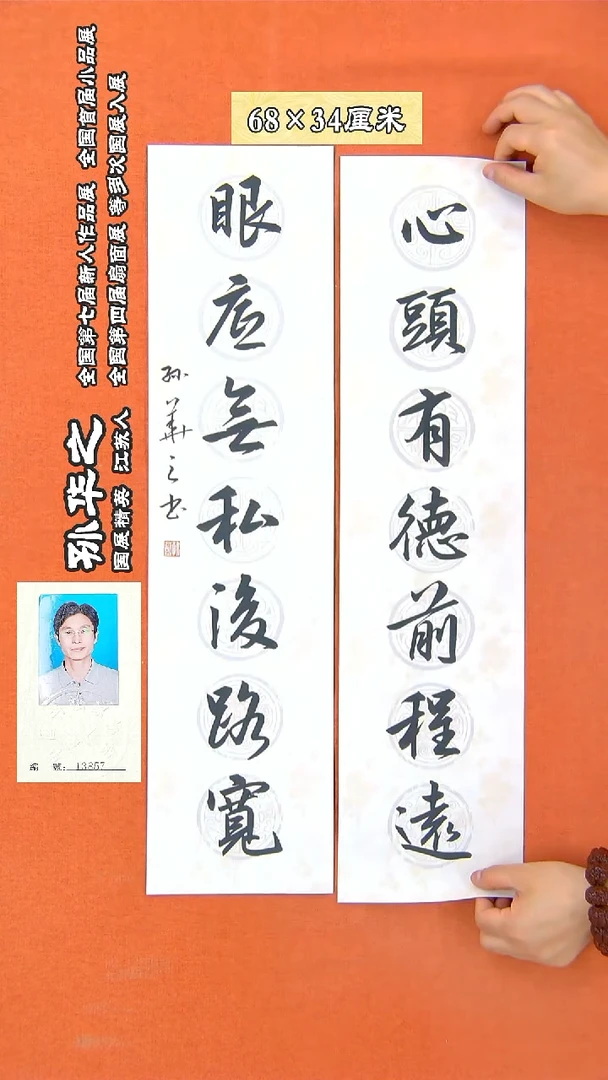 68×34厘米
心頭有德前程遠
眼底無私後路寬
孙華之书
全国第七届新人作品展 全国首届小品展
全国第四届扇面展 等多次国展入展
孙华之
国展精英 江苏人
編 號: 13857